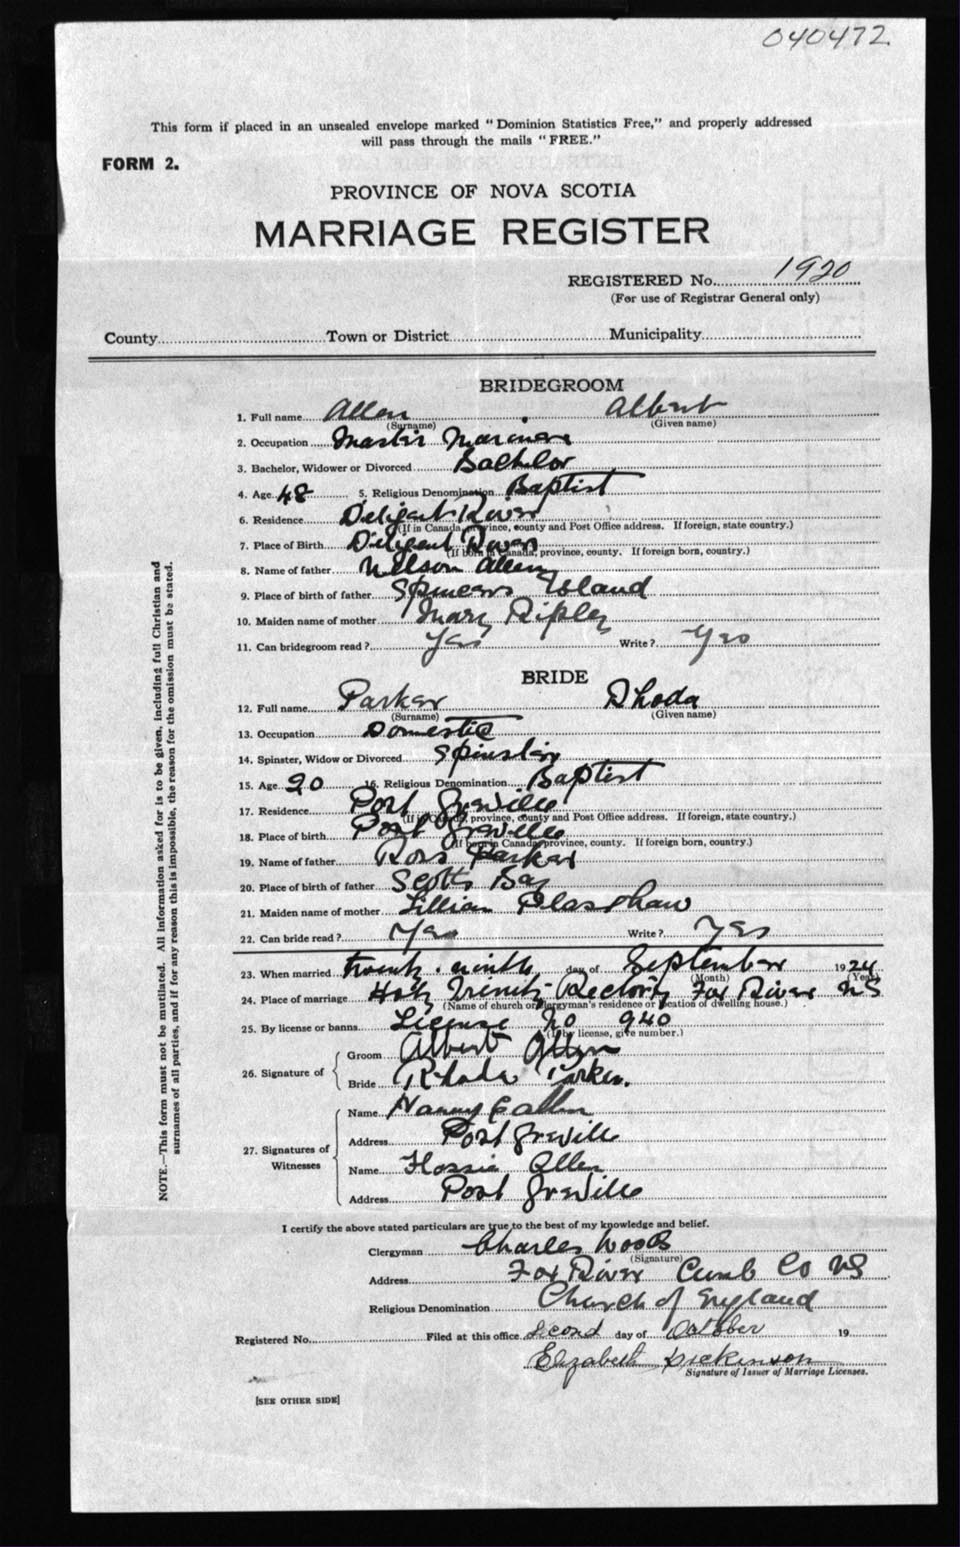 040472
This form if placed in an unsealed envelope marked "Dominion Statistics Free," and properly addressed
will pass through the mails "FREE."
FORM 2.
PROVINCE OF NOVA SCOTIA
MARRIAGE REGISTER
REGISTERED No. 1920
(For use of Registrar General only)
County Town or District Municipality
BRIDEGROOM
1. Full name Allen Albert
(Surname) (Given name)
2. Occupation Master Mariner
3. Bachelor, Widower or Divorced Bachelor
4. Age 48 5. Religious Denomination Baptist
6. Residence Diligent River
(If in Canada, province, county and Post Office address. If foreign, state country.)
7. Place of Birth Diligent River
(If born in Canada, province, county. If foreign born, country.)
8. Name of father Nelson Allen
9. Place of birth of father Spencers Island
10. Maiden name of mother Mary Ripley
11. Can bridegroom read? Yes Write? Yes
BRIDE
12. Full name Parker Rhoda
(Surname) (Given name)
13. Occupation Domestic
14. Spinster, Widow or Divorced Spinster
15. Age 20 16. Religious Denomination Baptist
17. Residence Port Greville
(If in Canada, province, county and Post Office address. If foreign, state country.)
18. Place of birth Port Greville
(If born in Canada, province, county. If foreign born, country.)
19. Name of father Ross Parker
20. Place of birth of father Scotts Bay
21. Maiden name of mother Lillian
22. Can bride read? Yes Write? Yes
23. When married twenty-ninth day of September 1924
(Month) (Year)
24. Place of marriage Holy Trinity Rectory Fox River NS
(Name of church or clergyman's residence or location of dwelling house.)
25. By license or banns License No 940
(If by license, give number.)
26. Signature of
Groom Albert Allen
Bride Rhoda Parker.
27. Signatures of Witnesses
Name Allen
Address Port Greville
Name Flossie Allen
Address Port Greville
I certify the above stated particulars are true to the best of my knowledge and belief.
Clergyman Charles Wood
(Signature)
Address Fox River Cumb Co NS
Religious Denomination Church of England
Registered No. Filed at this office Second day of October 19
Elizabeth Dickinson
Signature of Issuer of Marriage Licenses.
[SEE OTHER SIDE]
NOTE.—This form must not be mutilated. All information asked for is to be given, including full Christian and
surnames of all parties, and if for any reason this is impossible, the reason for the omission must be stated.